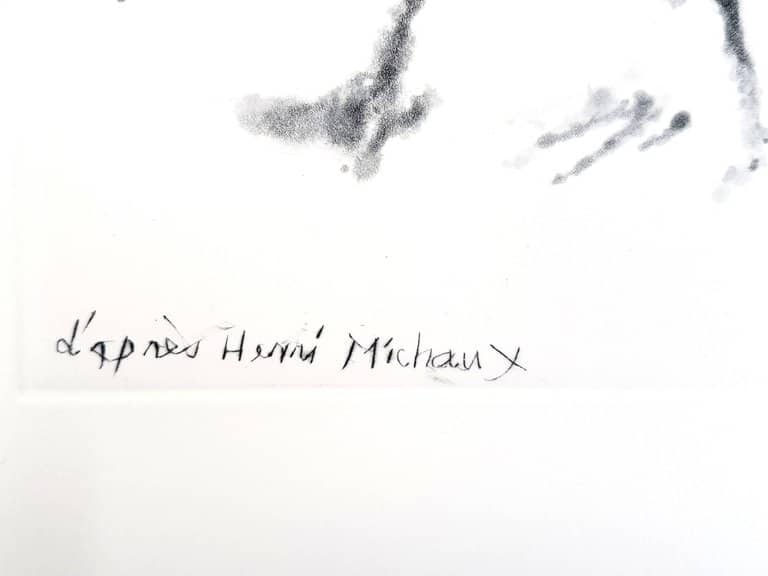 d'après Henri Michaux